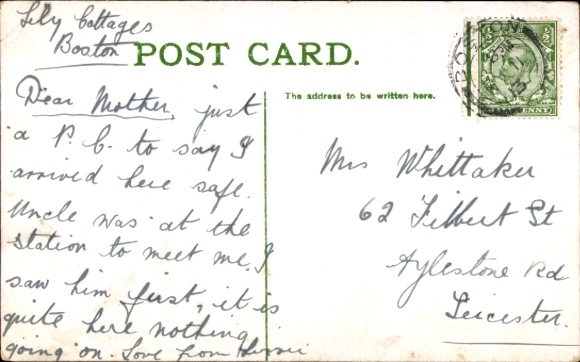 Lily Cottages
Boston
POST CARD.
The address to be written here.
Dear Mother, just
a P. C. to say I
arrived here safe.
Uncle was at the
station to meet me, I
saw him first, it is
quite here nothing
going on. Love from
Mrs Whittaker
62 Filbert St
Aylestone Rd
Leicester.
BOSTON